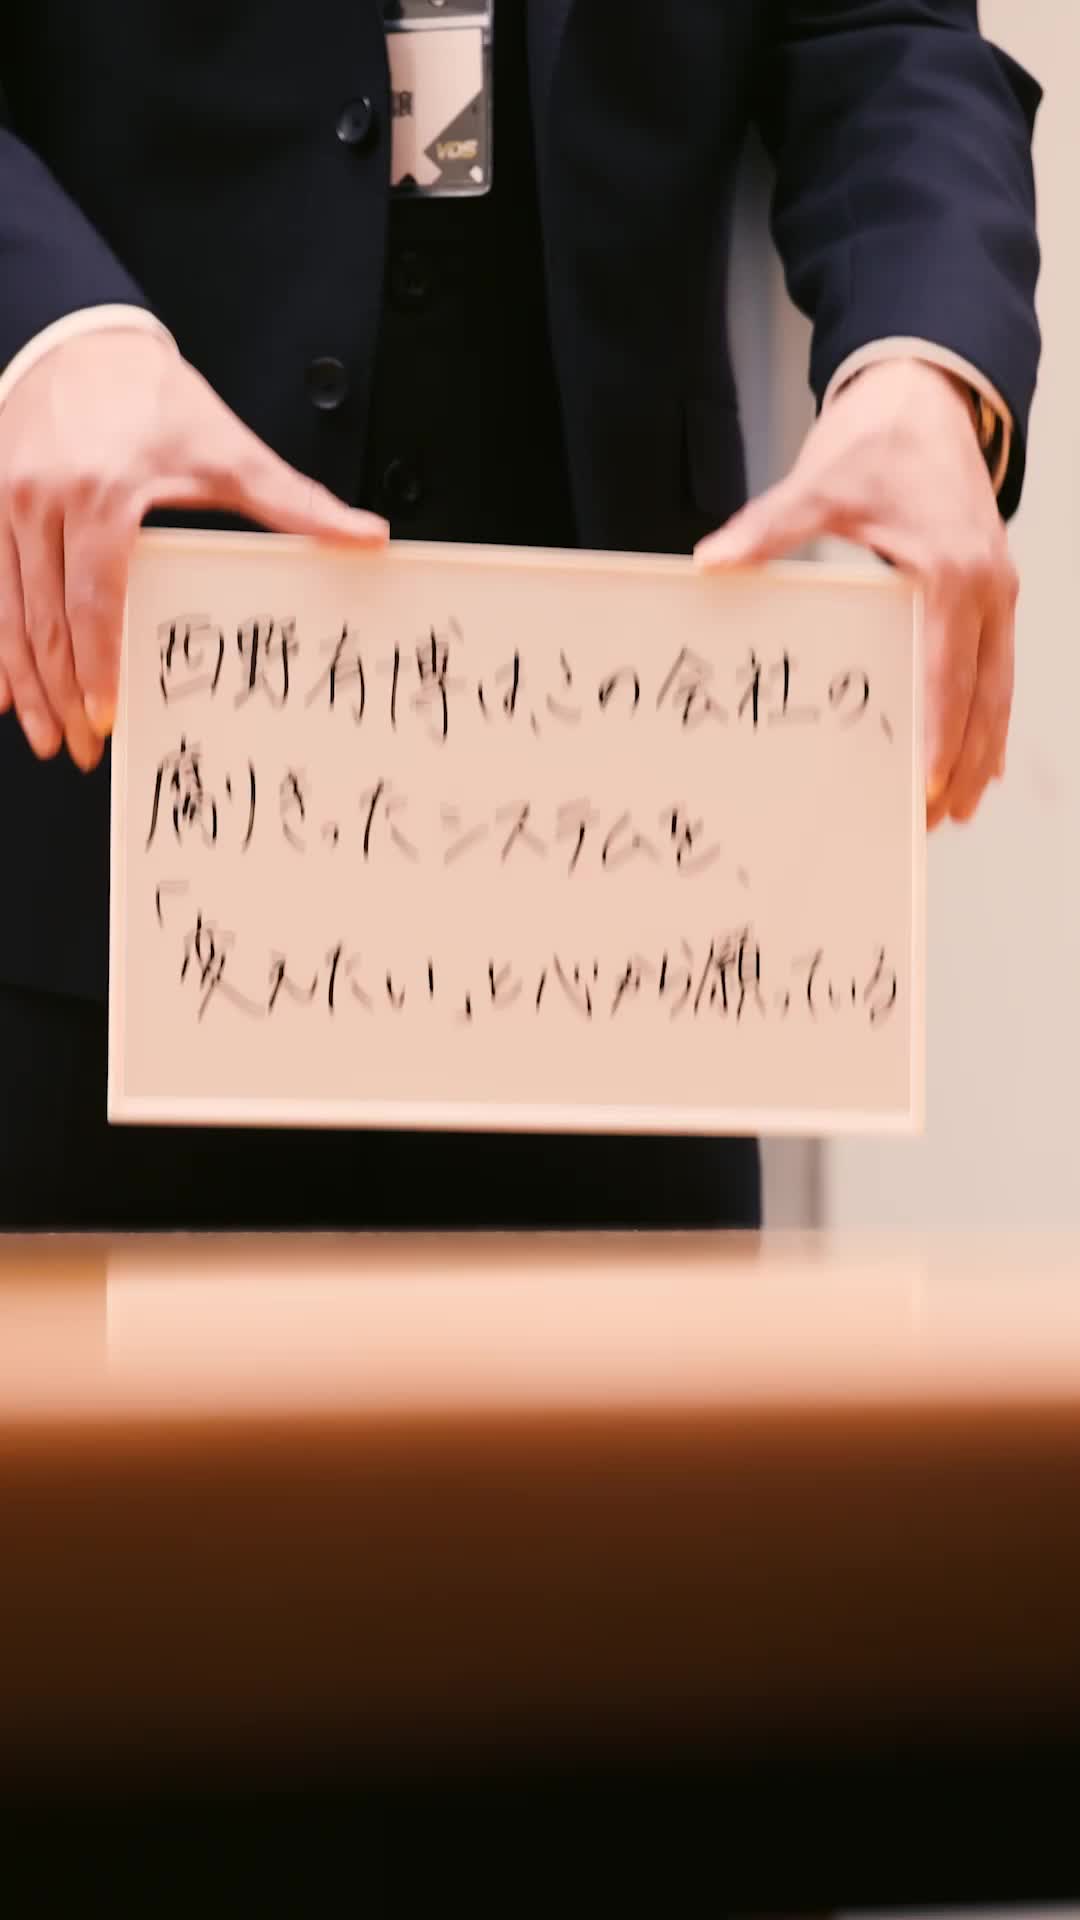 譲
VDS
西野有博は、この会社の、
腐りきったシステムを、
「変えたい」と心から願っている